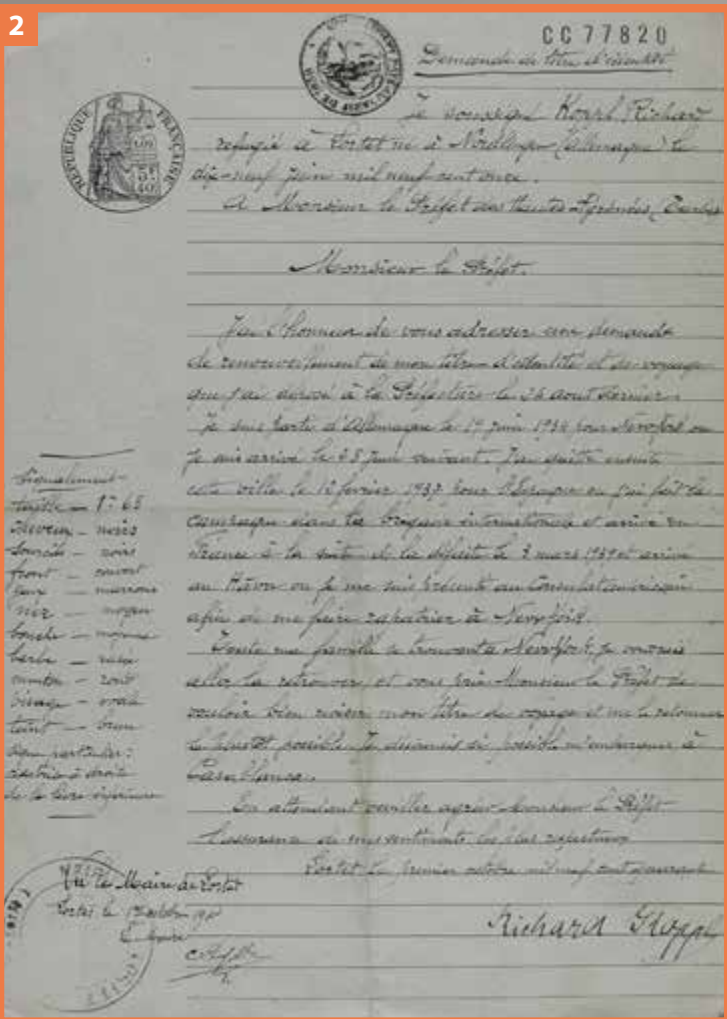 2
CC 77820
Demande de titre d'identité
RÉPUBLIQUE FRANÇAISE
Je soussigné Richard
refugié à Portet né à Nordlingen (Allemagne) le
dix-neuf juin mil neuf cent onze.
A Monsieur le Préfet des Hautes Pyrénées (Tarbes)
Monsieur le Préfet.
J'ai l'honneur de vous adresser une demande
de renouvellement de mon titre d'identité et de voyage
que j'ai déposé à la Préfecture le 26 aout dernier.
Je suis parti d'Allemagne le 19 juin 1934 pour Newyork ou
je suis arrivé le 28 juin suivant. J'ai quitté ensuite
cette ville le 12 février 1937 pour l'Espagne ou j'ai fait la
campagne dans les brigades internationales et arrivé en
France à la suite de la défaite le 3 mars 1939 et arrivé
au Havre ou je me suis présenté au Consulat américain
afin de me faire rapatrier à Newyork.
Toute ma famille se trouvant à Newyork, je voudrais
aller la retrouver, et vous prie Monsieur le Préfet de
vouloir bien viser mon titre de voyage et me le retourner
le plustot possible. Je désirerais si possible m'embarquer à
Casablanca.
En attendant veuillez agréer Monsieur le Préfet
l'assurance de mes sentiments les plus respectueux
Portet le premier octobre mil neuf cent quarante
Richard
Signalement
taille — 1m 65
cheveux — noirs
sourcils — noirs
front — couvert
yeux — marrons
nez — moyen
bouche — moyenne
barbe — rasée
menton — rond
visage — ovale
teint — brun
signe particulier :
cicatrice à droite
de la lèvre supérieure
Vu le Maire de Portet
Portet le octobre
Le Maire